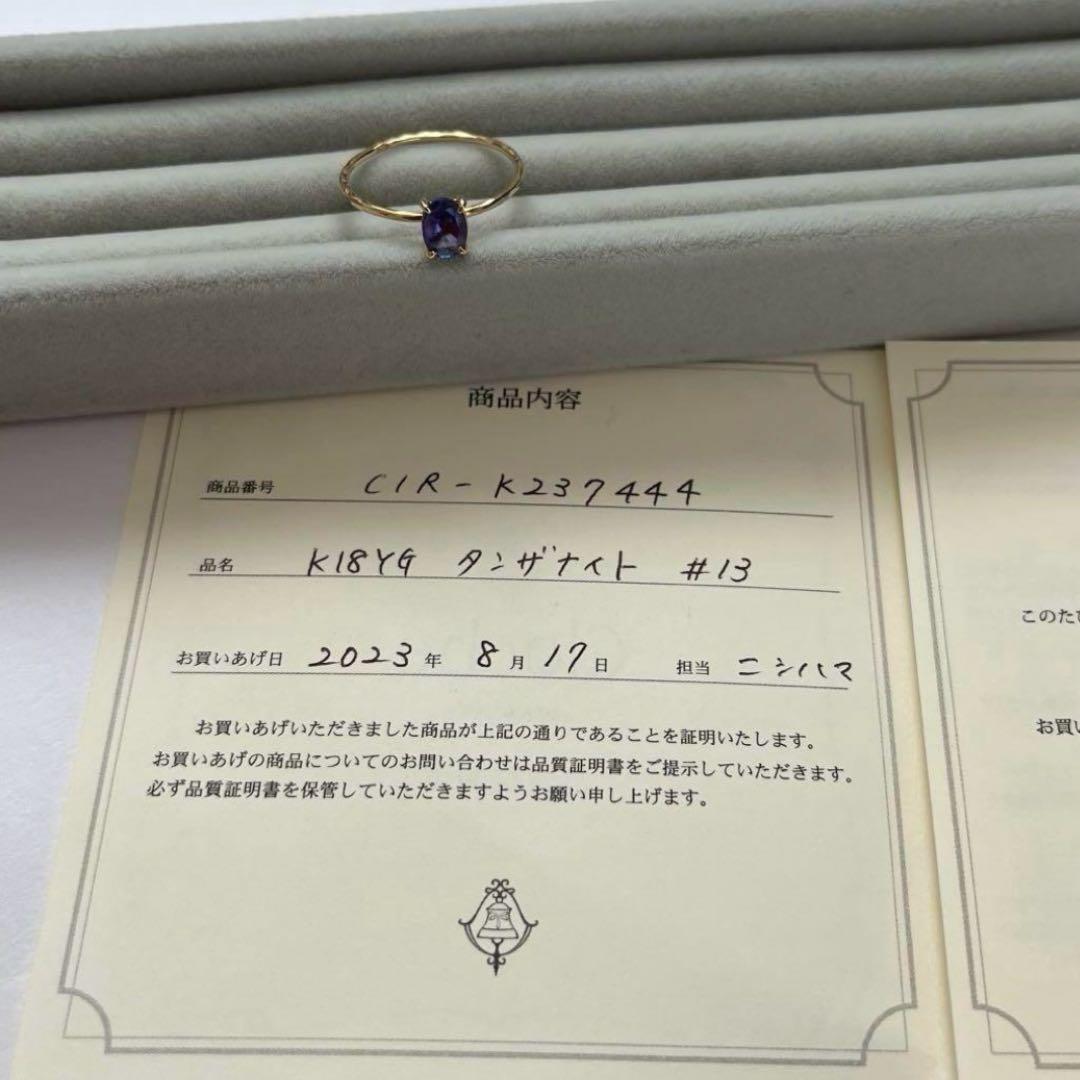 商品内容
商品番号 CIR-K237444
品名 K18YG タンザナイト #13
お買いあげ日 2023年 8月17日 担当 ニシハマ
お買いあげいただきました商品が上記の通りであることを証明いたします。
お買いあげの商品についてのお問い合わせは品質証明書をご提示していただきます。
必ず品質証明書を保管していただきますようお願い申し上げます。
このたび
お買い